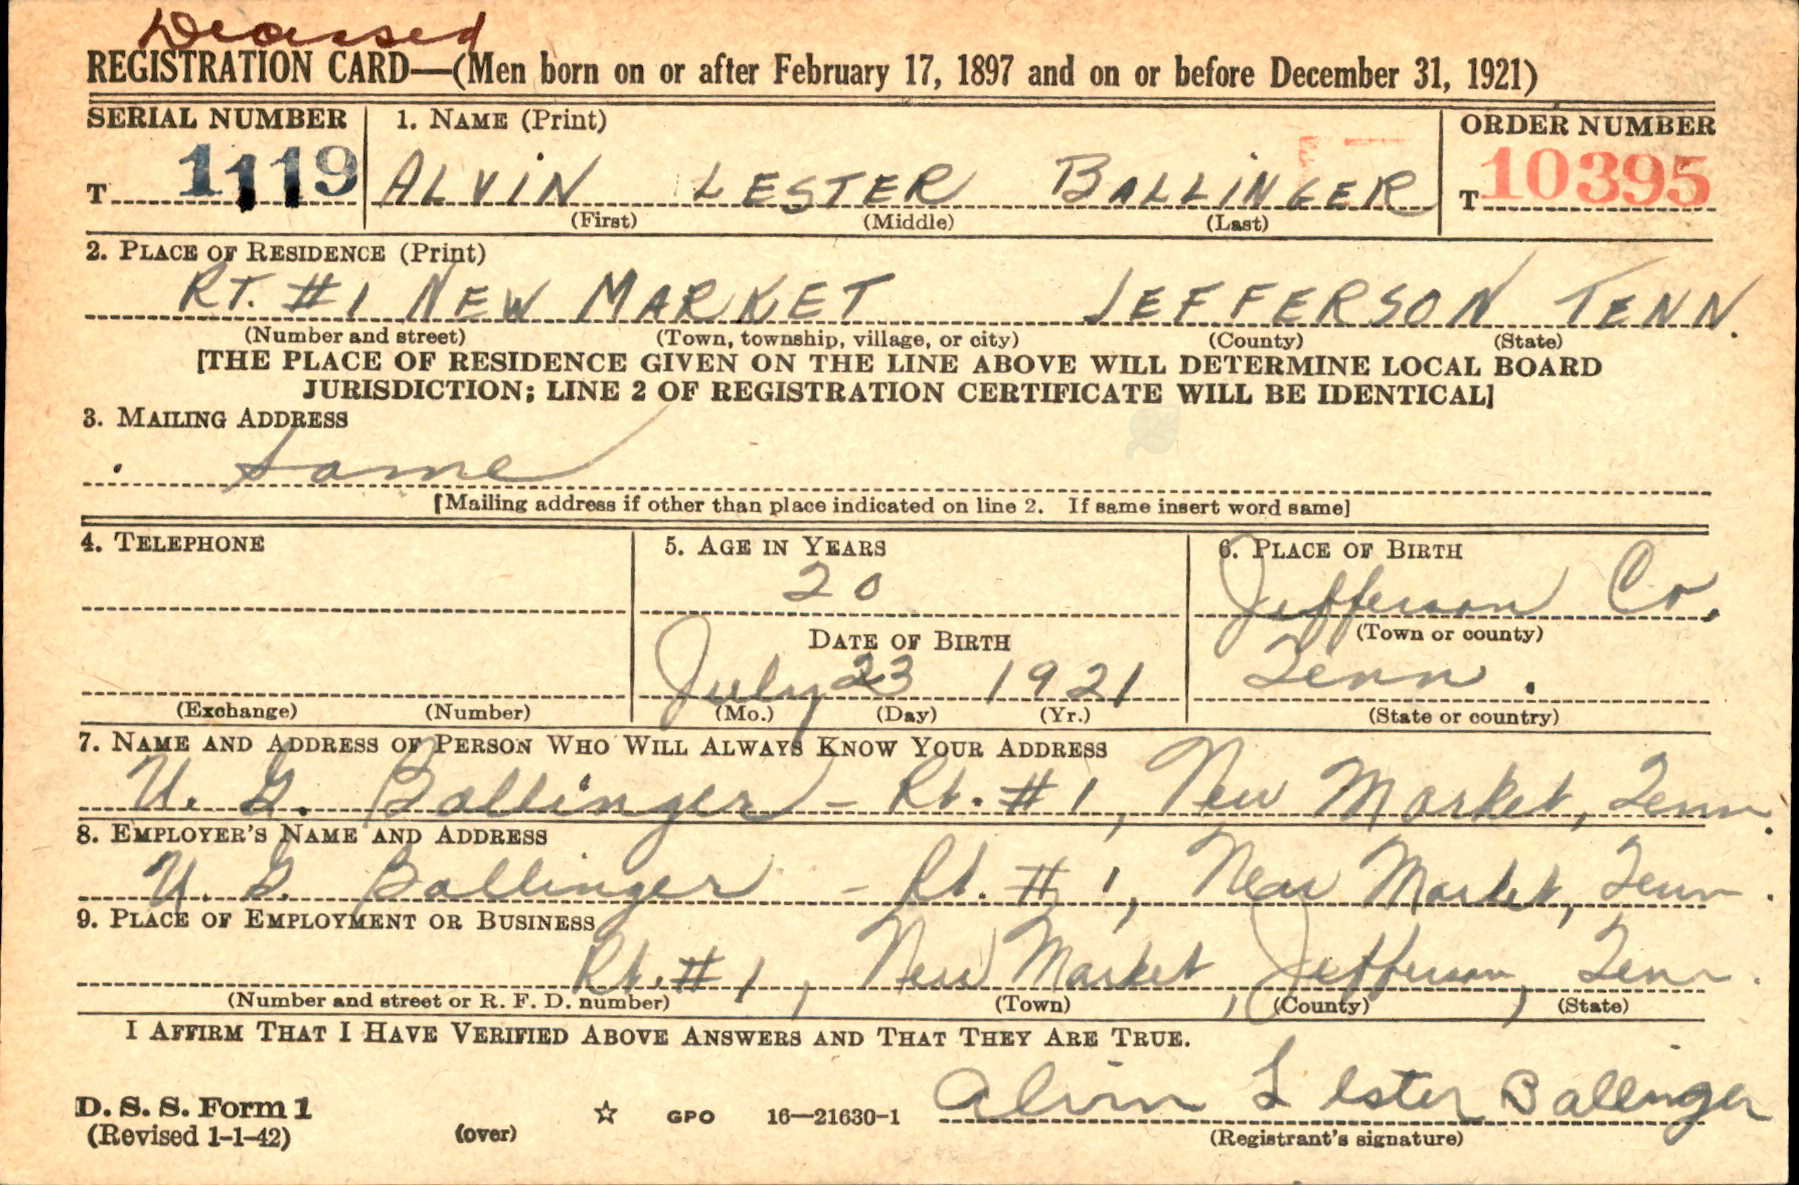 Deceased
REGISTRATION CARD—(Men born on or after February 17, 1897 and on or before December 31, 1921)
SERIAL NUMBER 1. NAME (Print) ORDER NUMBER
T 1119 ALVIN LESTER BALLINGER T 10395
(First) (Middle) (Last)
2. PLACE OF RESIDENCE (Print)
RT. #1 NEW MARKET JEFFERSON TENN.
(Number and street) (Town, township, village, or city) (County) (State)
[THE PLACE OF RESIDENCE GIVEN ON THE LINE ABOVE WILL DETERMINE LOCAL BOARD
JURISDICTION; LINE 2 OF REGISTRATION CERTIFICATE WILL BE IDENTICAL]
3. MAILING ADDRESS
Same
[Mailing address if other than place indicated on line 2. If same insert word same]
4. TELEPHONE 5. AGE IN YEARS 6. PLACE OF BIRTH
20 Jefferson Co.
DATE OF BIRTH (Town or county)
July 23 1921 Tenn.
(Exchange) (Number) (Mo.) (Day) (Yr.) (State or country)
7. NAME AND ADDRESS OF PERSON WHO WILL ALWAYS KNOW YOUR ADDRESS
U. G. Ballinger - Rt. #1, New Market, Tenn.
8. EMPLOYER'S NAME AND ADDRESS
U. G. Ballinger - Rt. #1, New Market, Tenn.
9. PLACE OF EMPLOYMENT OR BUSINESS
Rt. #1, New Market, Jefferson, Tenn.
(Number and street or R. F. D. number) (Town) (County) (State)
I AFFIRM THAT I HAVE VERIFIED ABOVE ANSWERS AND THAT THEY ARE TRUE.
Alvin Lester Ballinger
D. S. S. Form 1 (over) ☆ GPO 16—21630-1 (Registrant's signature)
(Revised 1-1-42)